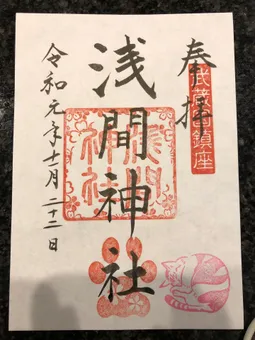 奉拝
武蔵国鎮座
浅間神社
令和元年十一月二十二日